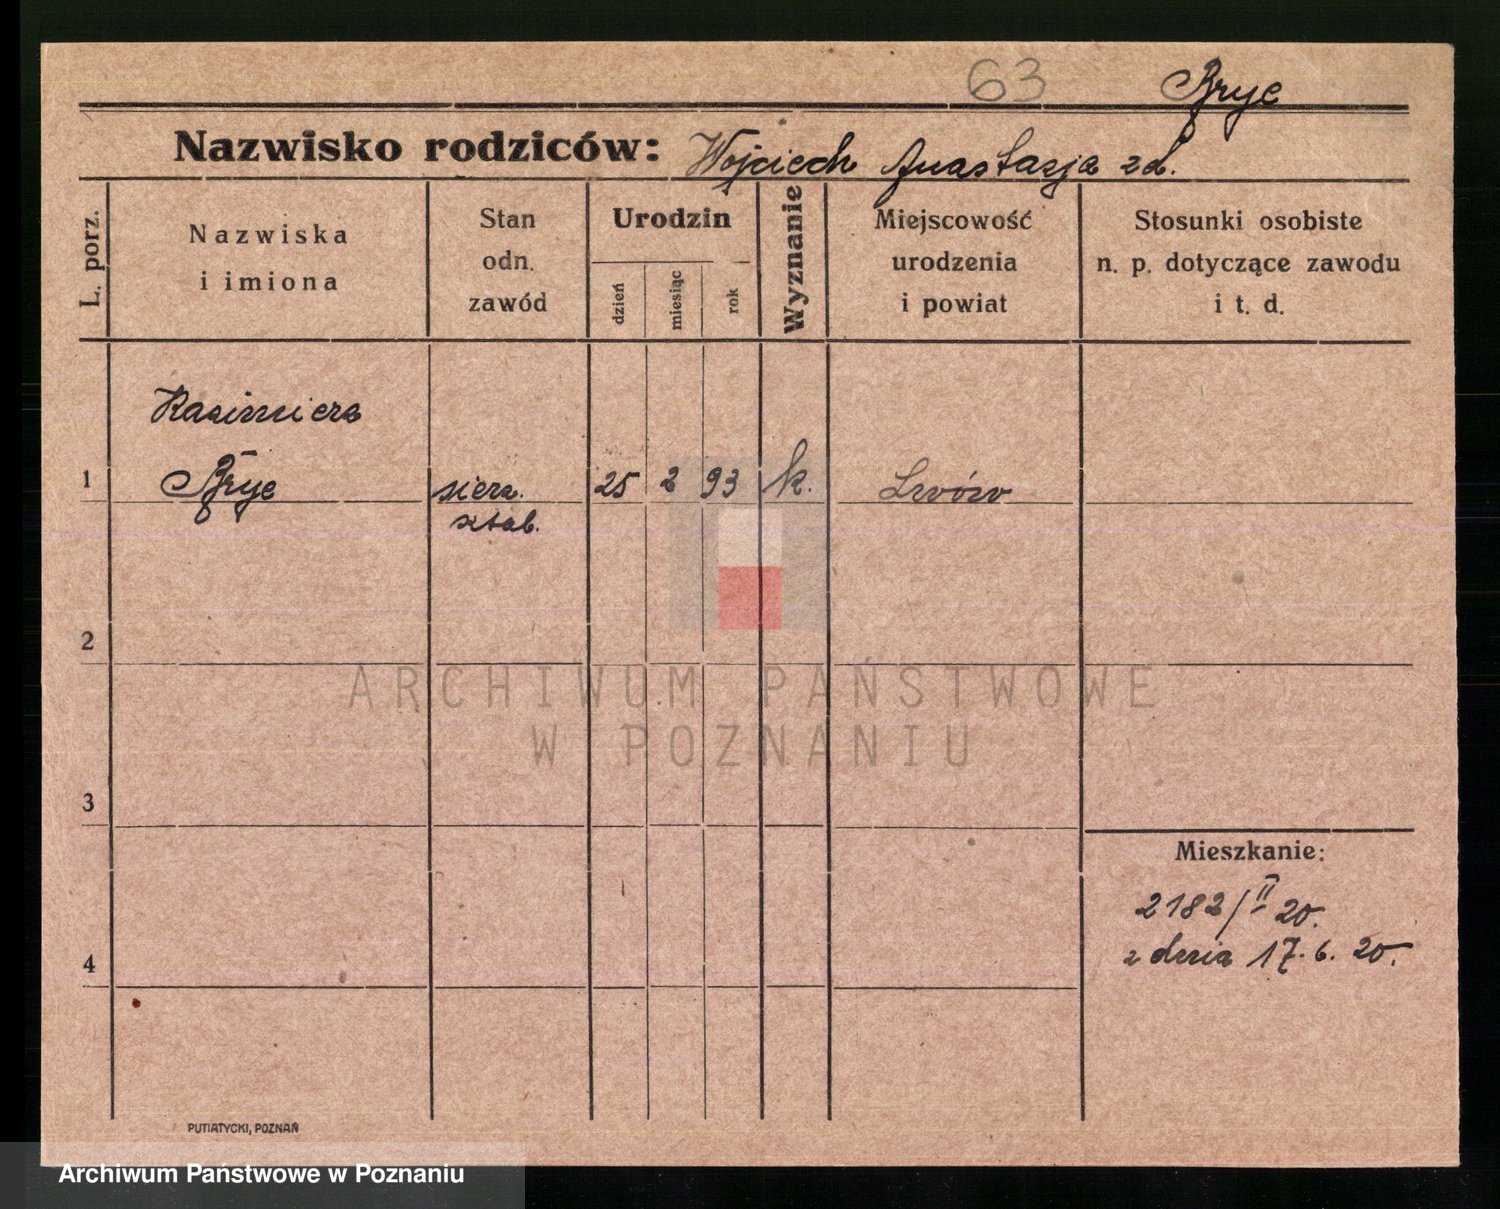 63 Bryc
Nazwisko rodziców: Wojciech Anastazja zd.
L. porz.
Nazwiska
i imiona
Stan
odn.
zawód
Urodzin
dzień
miesiąc
rok
Wyznanie
Miejscowość
urodzenia
i powiat
Stosunki osobiste
n. p. dotyczące zawodu
i t. d.
Kazimierz
1 Bryc sierż. 25 2 93 k. Lwów
sztab.
2
ARCHIWUM PAŃSTWOWE
W POZNANIU
3
Mieszkanie:
2182/II 20.
z dnia 17.6.20.
4
PUTIATYCKI, POZNAŃ
Archiwum Państwowe w Poznaniu